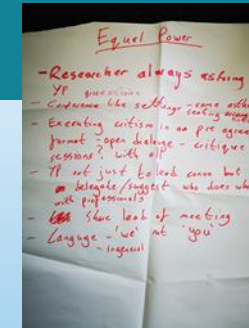 Equel Power
- Researcher always asking
YP questions
- Conference like settings - same
seating
- Executing critism in an pre agree
format - open dialoge - critique
sessions? with
- YP not just to lead conve but
delegate/suggest who does wh
with professionals
- Share load of meeting
- Languge - 'we' not 'you'